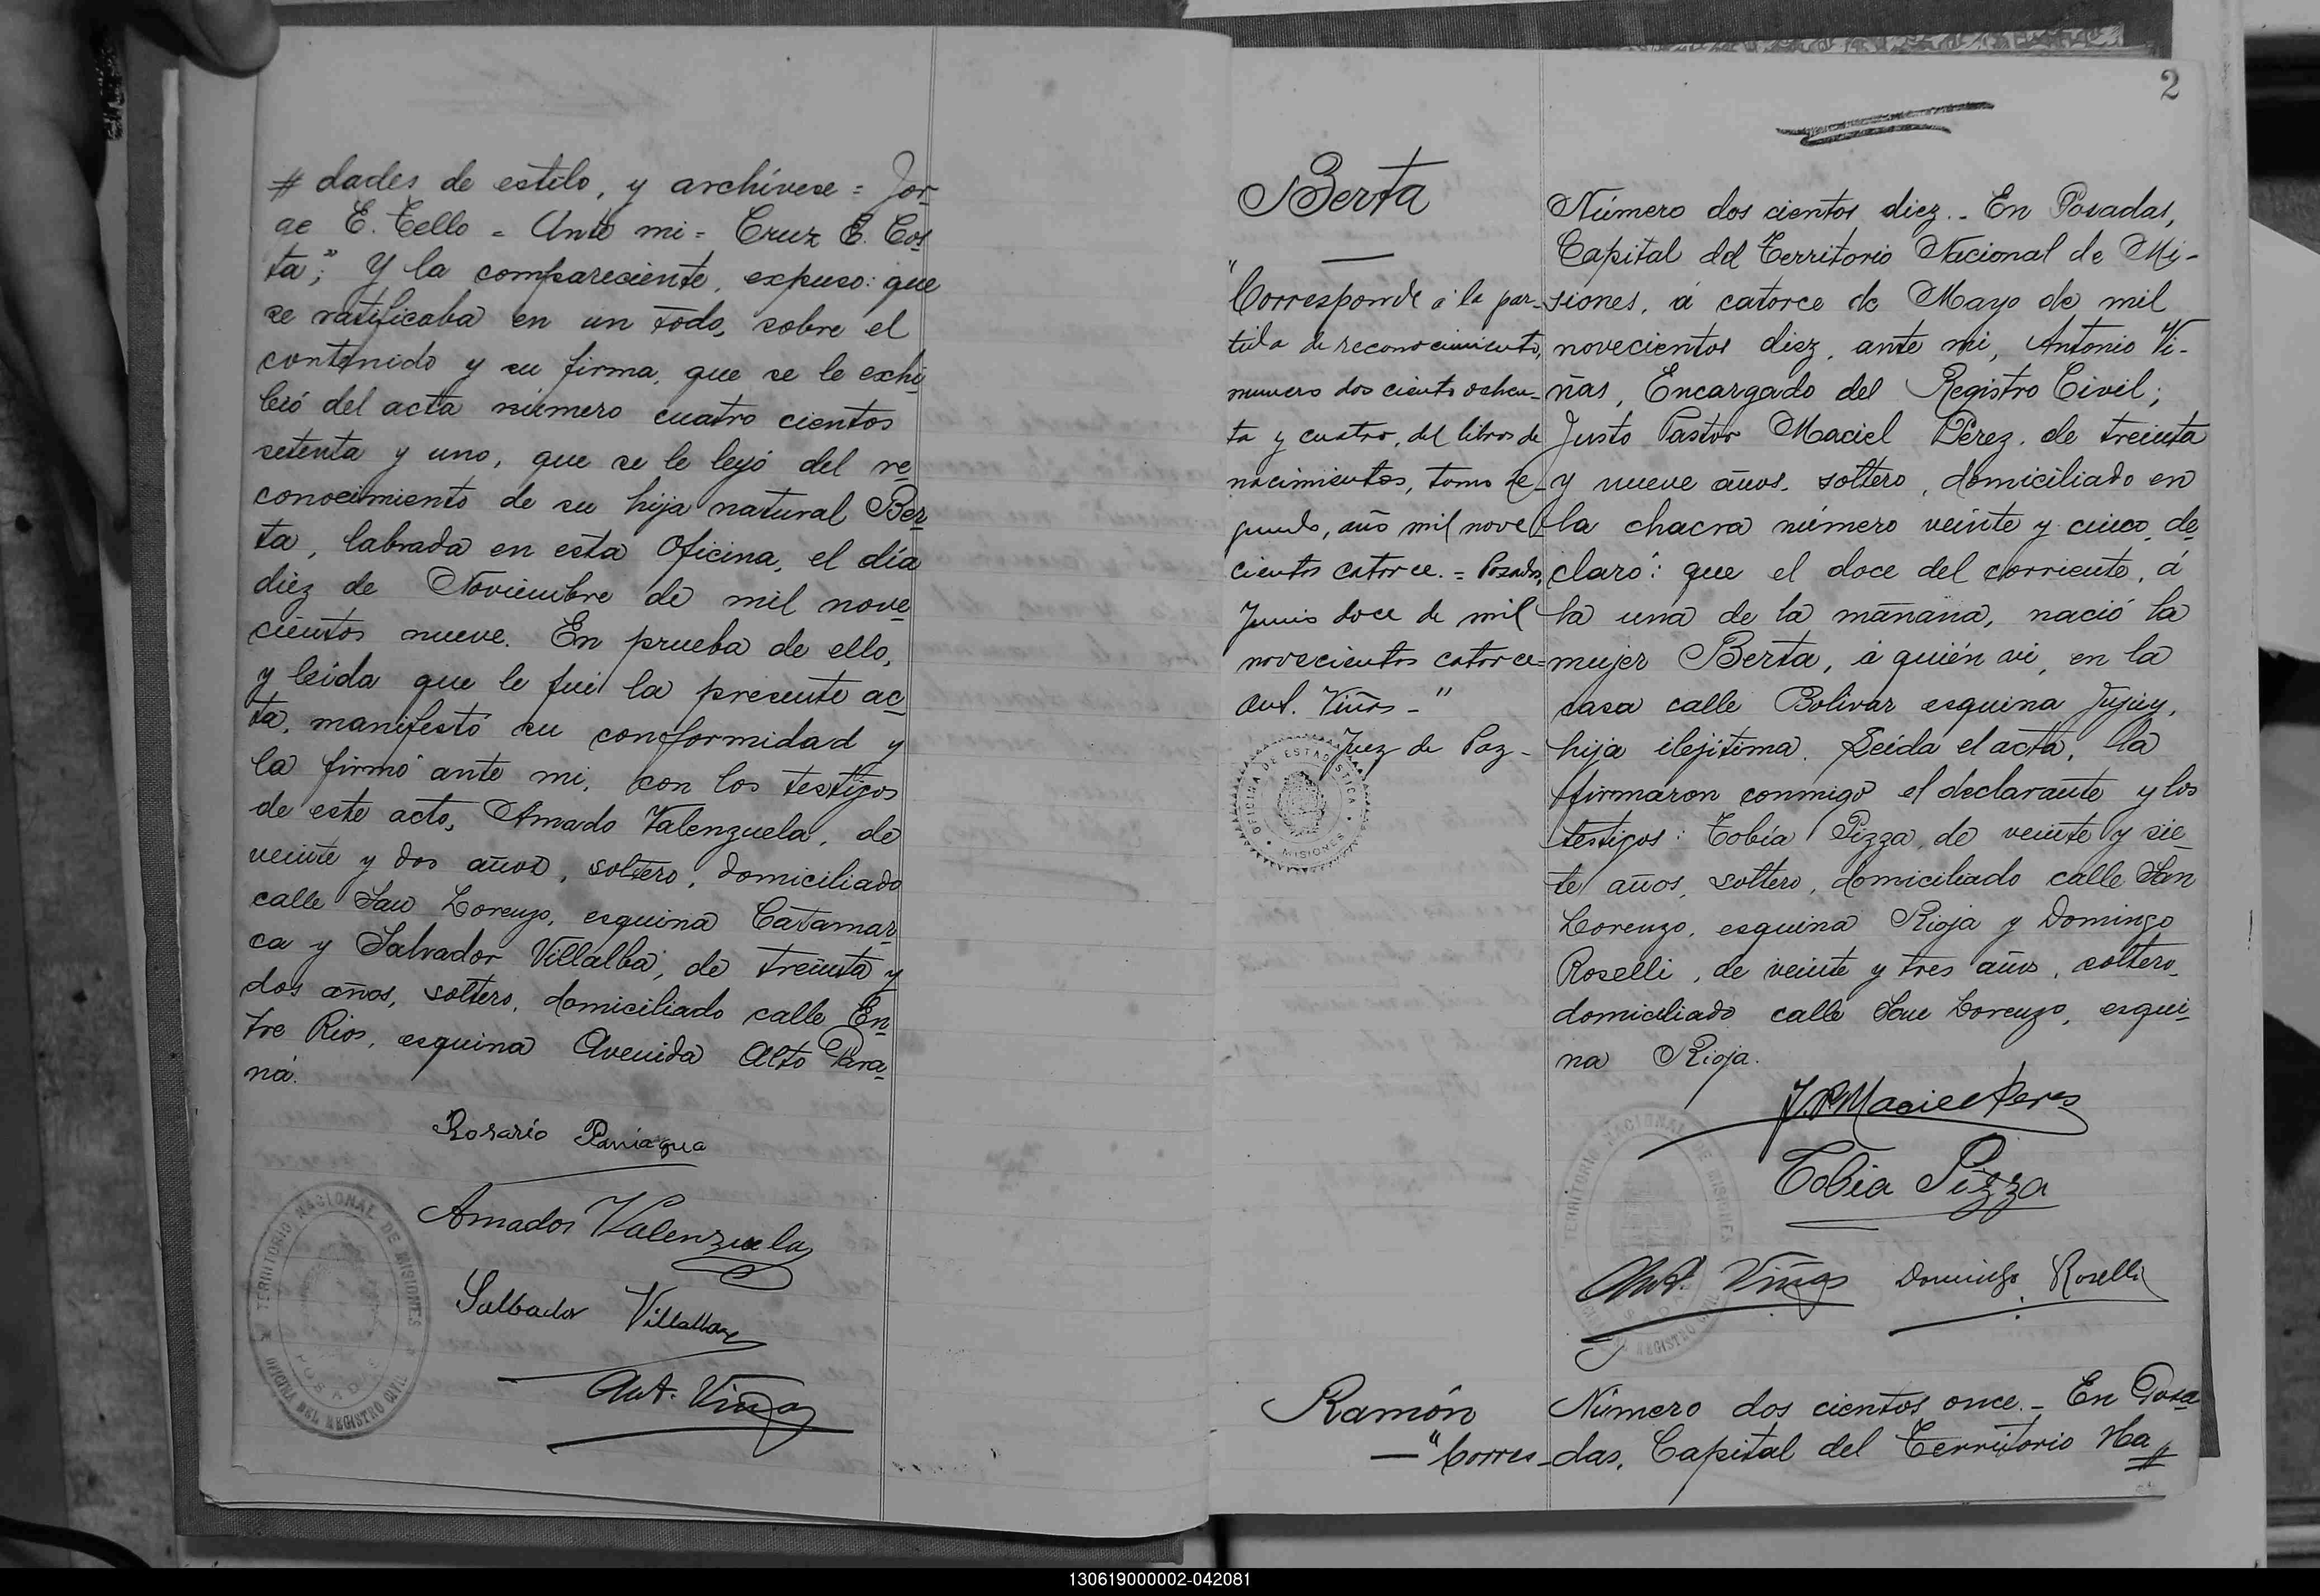 # dades de estilo, y archívese = Jor-
ge E. Tello = Ante mi = Cruz E. Cos
ta"; Y la compareciente, expuso: que
se ratificaba en un todo, sobre el
contenido y su firma, que se le exhi
bió del acta número cuatro cientos
setenta y uno, que se le leyó del re
conocimiento de su hija natural Ber
ta, labrada en esta Oficina, el día
diez de Noviembre de mil nove
cientos nueve. En prueba de ello,
y leida que le fué la presente ac
ta, manifestó su conformidad y
la firmó ante mi, con los testigos
de este acto, Amado Valenzuela, de
veinte y dos años, soltero, domiciliado
calle San Lorenzo, esquina Catamar
ca y Salvador Villalba, de treinta y
dos años, soltero, domiciliado calle En
tre Rios, esquina Avenida Alto Para
ná.
Rosario Paniagua
Amador Valenzuela
Salbador Villalba
Ant. Viñas
TERRITORIO NACIONAL DE MISIONES
OFICINA DEL REGISTRO CIVIL
POSADAS
2
Berta
"Corresponde á la par-
tida de reconocimiento,
numero dos ciento ochen-
ta y cuatro, del libro de
nacimientos, tomo se-
gundo, año mil nove
cientos catorce. = Posadas,
Junio doce de mil
novecientos catorce=
Ant. Viñas - "
Juez de Paz -
OFICINA DE ESTADISTICA
MISIONES
Número dos cientos diez. - En Posadas,
Capital del Territorio Nacional de Mi-
siones, á catorce de Mayo de mil
novecientos diez, ante mi, Antonio Vi-
ñas, Encargado del Registro Civil;
Justo Pastor Maciel Pérez, de treinta
y nueve años, soltero, domiciliado en
la chacra número veinte y cinco, de
claró: que el doce del corriente, á
la una de la mañana, nació la
mujer Berta, á quién vi, en la
casa calle Bolivar esquina Jujuy,
hija ilejitima. Leida el acta, la
firmaron conmigo el declarante y los
testigos: Tobía Pizza, de veinte y sie
te años, soltero, domiciliado calle San
Lorenzo, esquina Rioja y Domingo
Roselli, de veinte y tres años, soltero,
domiciliado calle San Lorenzo, esqui
na Rioja.
J. P. Maciel Peres
Tobia Pizza
Ant. Viñas Domingo Roselli
TERRITORIO NACIONAL DE MISIONES
REGISTRO CIVIL
Ramón
— "Corres-
Número dos cientos once. - En Posa
das, Capital del Territorio Na #
130619000002-042081